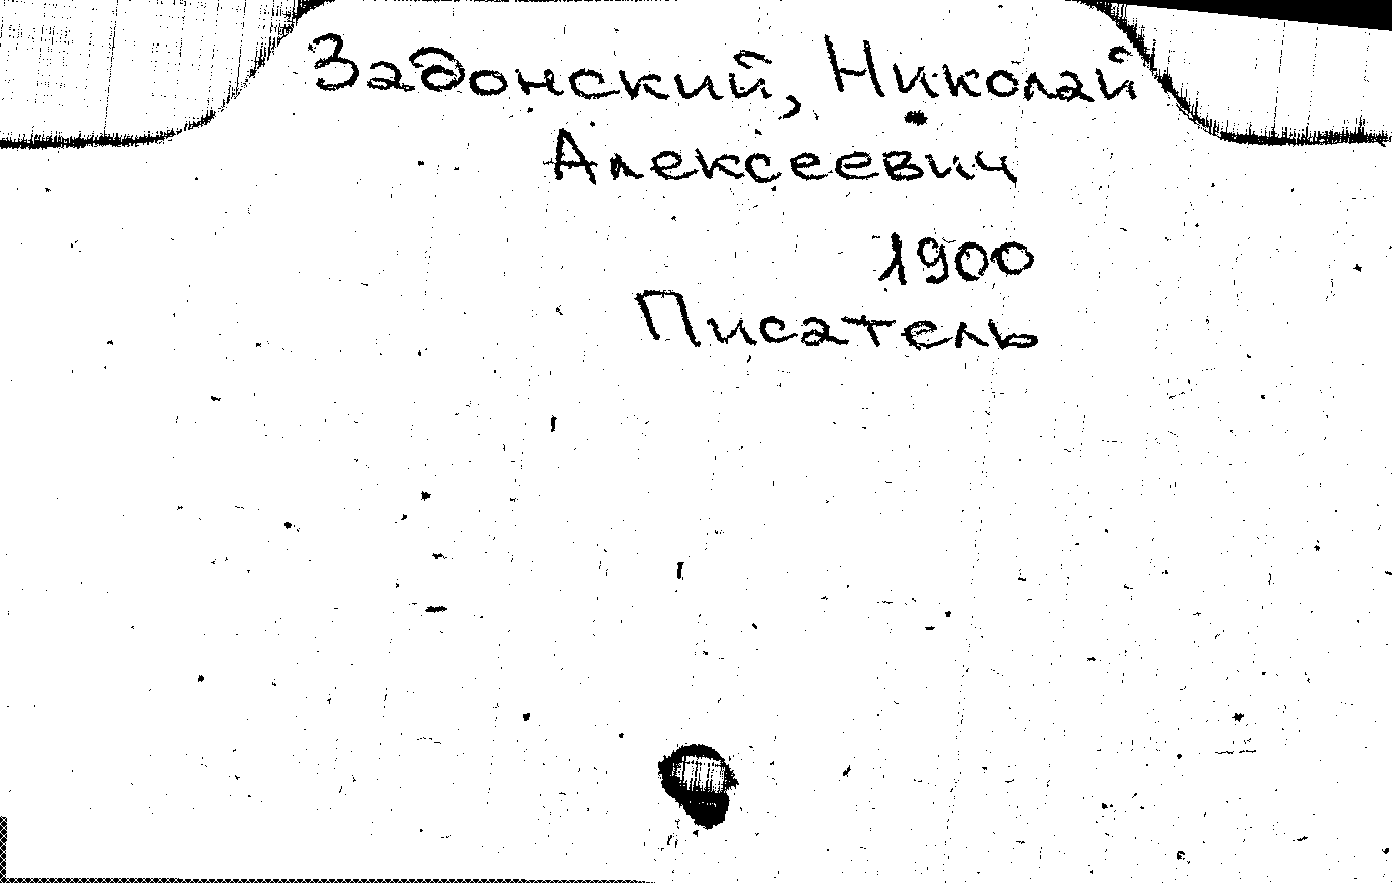 Задонский, Николай
Алексеевич
1900
Писатель